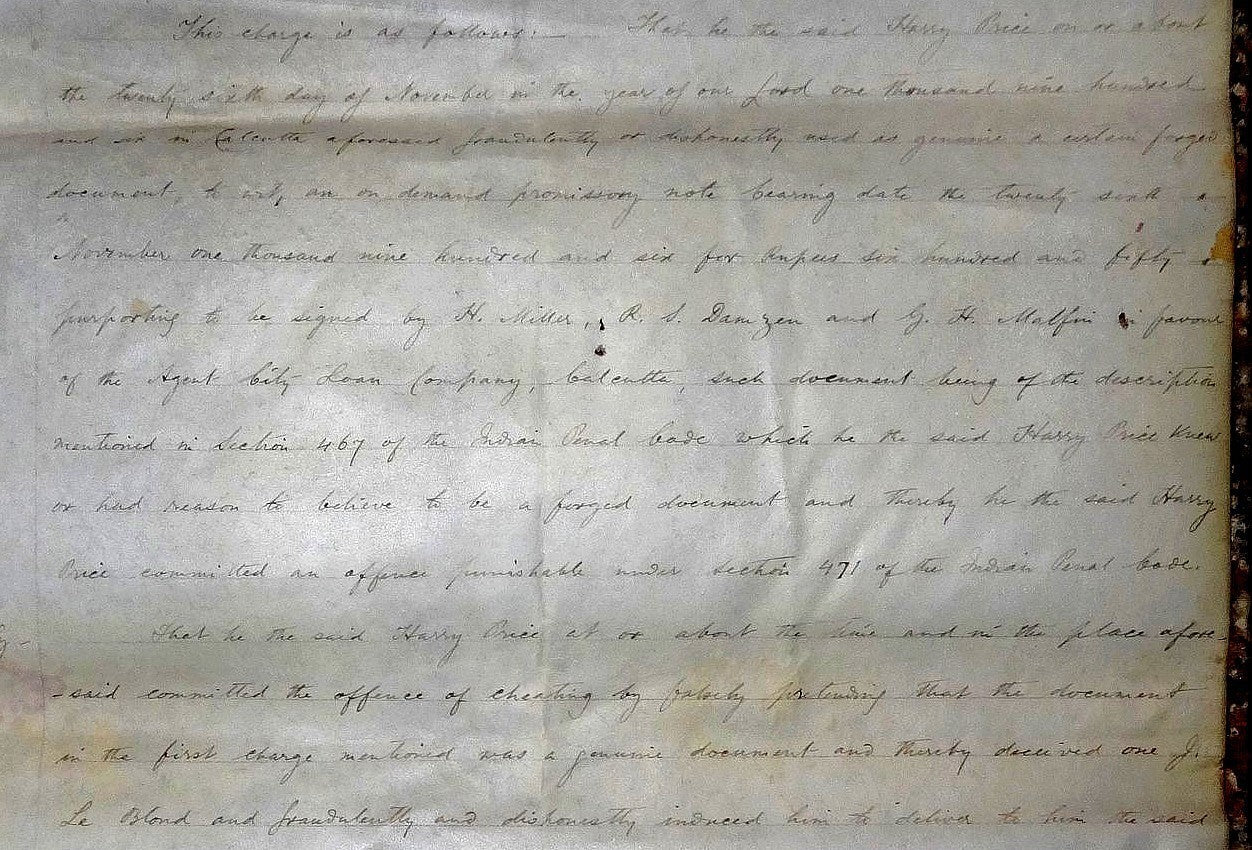 This charge is as follows:— That he the said Harry Price on or about
the twenty sixth day of November in the year of our Lord one thousand nine hundred
and six in Calcutta aforesaid fraudulently or dishonestly used as genuine a certain forged
document, to wit, an on demand promissory note bearing date the twenty sixth
November one thousand nine hundred and six for Rupees six hundred and fifty
purporting to be signed by H. Miller, R. S. Damzen and G. H. Malfin in favour
of the Agent City Loan Company, Calcutta, such document being of the description
mentioned in Section 467 of the Indian Penal Code which he the said Harry Price knew
or had reason to believe to be a forged document and thereby he the said Harry
Price committed an offence punishable under section 471 of the Indian Penal Code.
That he the said Harry Price at or about the time and in the place afore-
-said committed the offence of cheating by falsely pretending that the document
in the first charge mentioned was a genuine document and thereby deceived one J.
Le Blond and fraudulently and dishonestly induced him to deliver to him the said